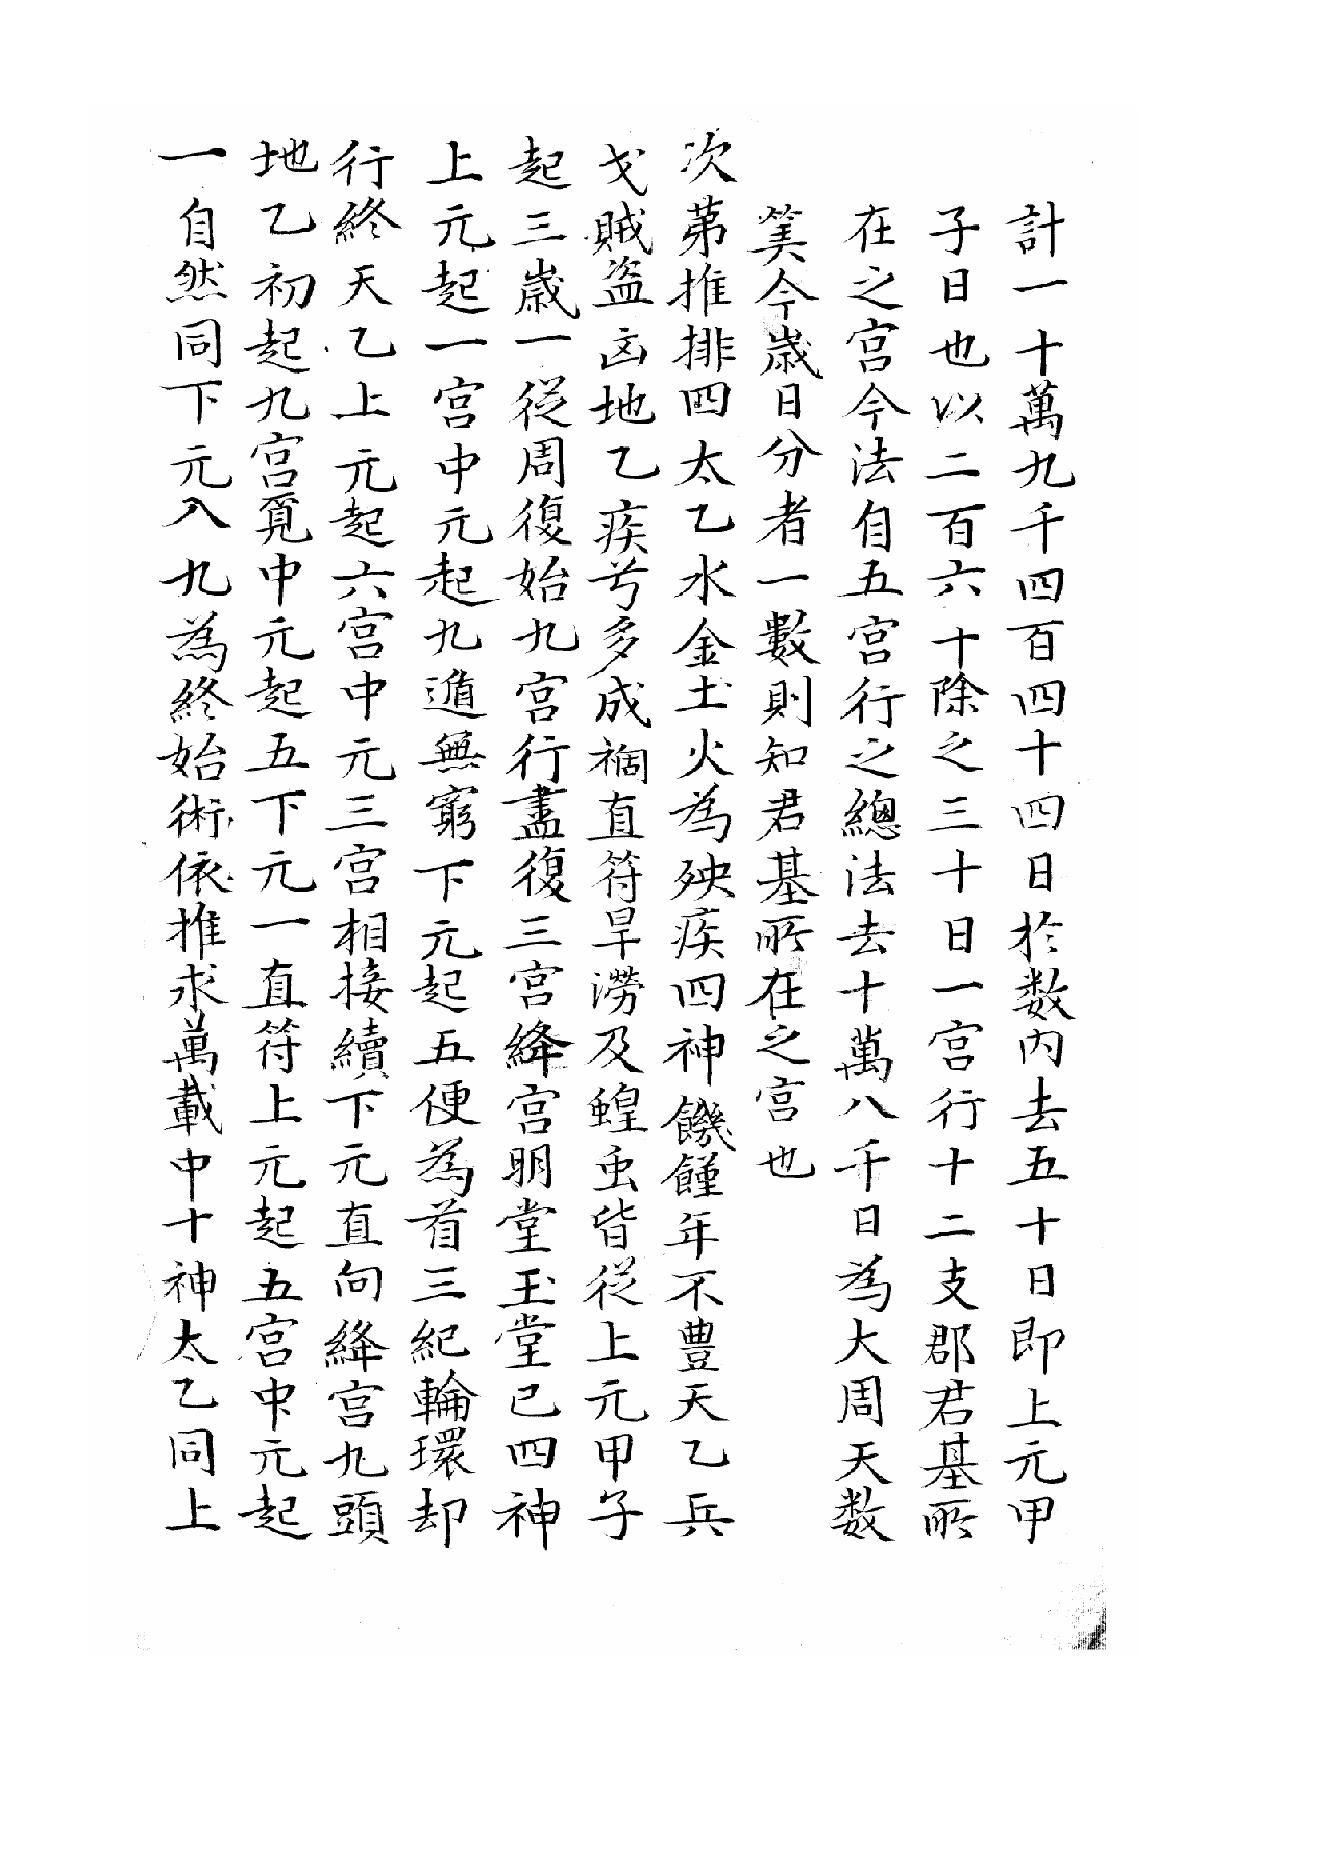 計一十萬九千四百四十四日於数内去五十日即上元甲
子日也以二百六十除之三十日一宫行十二支郡君基所
在之宫今法自五宫行之總法去十萬八千日為大周天数
筭今歳日分者一數則知君基所在之宫也
次苐推排四太乙水金土火為殃疾四神饑饉年不豊天乙兵
戈賊盗凶地乙疾兮多成禍直符旱澇及蝗虫皆從上元甲子
起三歳一從周復始九宫行盡復三宫絳宫明堂玉堂已四神
上元起一宫中元起九遁無窮下元起五便為首三紀輪環却
行終天乙上元起六宫中元三宫相接續下元直向絳宫九頭
地乙初起九宫覓中元起五下元一直符上元起五宫中元起
一自然同下元入九為終始術依推求萬載中十神太乙同上